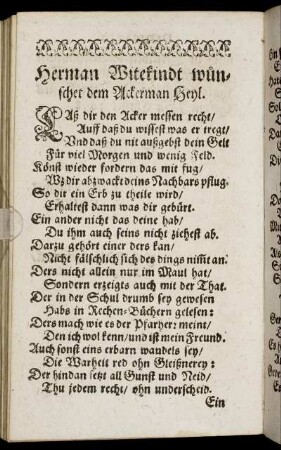 Herman Witekindt wün-
schet dem Ackerman Heyl.
LAß dir den Acker messen recht/
Auff daß du wissest was er tregt/
Vnd daß du nit außgebst dein Gelt
Für viel Morgen und wenig Feld.
Könst wieder fordern das mit fug/
Wz dir abzwackt deins Nachbars pflug.
So dir ein Erb zu theile wird/
Erhaltest dann was dir gebürt.
Ein ander nicht das deine hab/
Du ihm auch seins nicht ziehest ab.
Darzu gehört einer ders kan/
Nicht fälschlich sich des dings nim̃t an.
Ders nicht allein nur im Maul hat/
Sondern erzeigts auch mit der That.
Der in der Schul drumb sey gewesen
Habs in Rechen-Büchern gelesen:
Ders mach wie es der Pfarher meint/
Den ich wol kenn/und ist mein Freund.
Auch sonst eins erbarn wandels sey/
Die Warheit red ohn Gleißnerey:
Der hindan setzt all Gunst und Neid/
Thu jedem recht/ ohn underscheid.
Ein